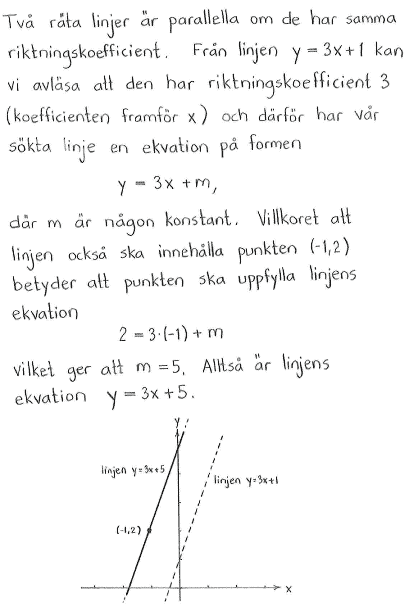 Två räta linjer är parallella om de har samma
riktningskoefficient. Från linjen y = 3x+1 kan
vi avläsa att den har riktningskoefficient 3
(koefficienten framför x) och därför har vår
sökta linje en ekvation på formen
y = 3x + m,
där m är någon konstant. Villkoret att
linjen också ska innehålla punkten (-1,2)
betyder att punkten ska uppfylla linjens
ekvation
2 = 3·(-1) + m
vilket ger att m = 5. Alltså är linjens
ekvation y = 3x + 5.
y
linjen y=3x+5
linjen y=3x+1
(-1,2)
x